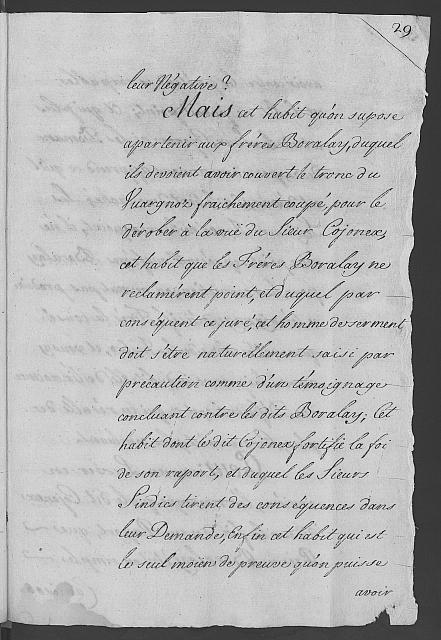 29
leur Négative?
Mais cet habit qu'on supose
apartenir aux fréres Boralay, duquel
ils devoient avoir couvert le tronc du
Vuargnoz fraichement coupé, pour le
dérober à la vuë du Sieur Cojonex,
cet habit que les Fréres Boralay ne
reclamérent point, et duquel par
conséquent ce juré, cet homme de serment
doit s'étre naturellement saisi par
précaution comme d'un témoignage
concluant contre les dits Boralay; Cet
habit dont le dit Cojonex fortifie la foi
de son raport, et duquel les Sieurs
Sindics tirent des conséquences dans
leur Demande, Enfin cet habit qui est
le seul moïen de preuve qu'on puisse
avoir